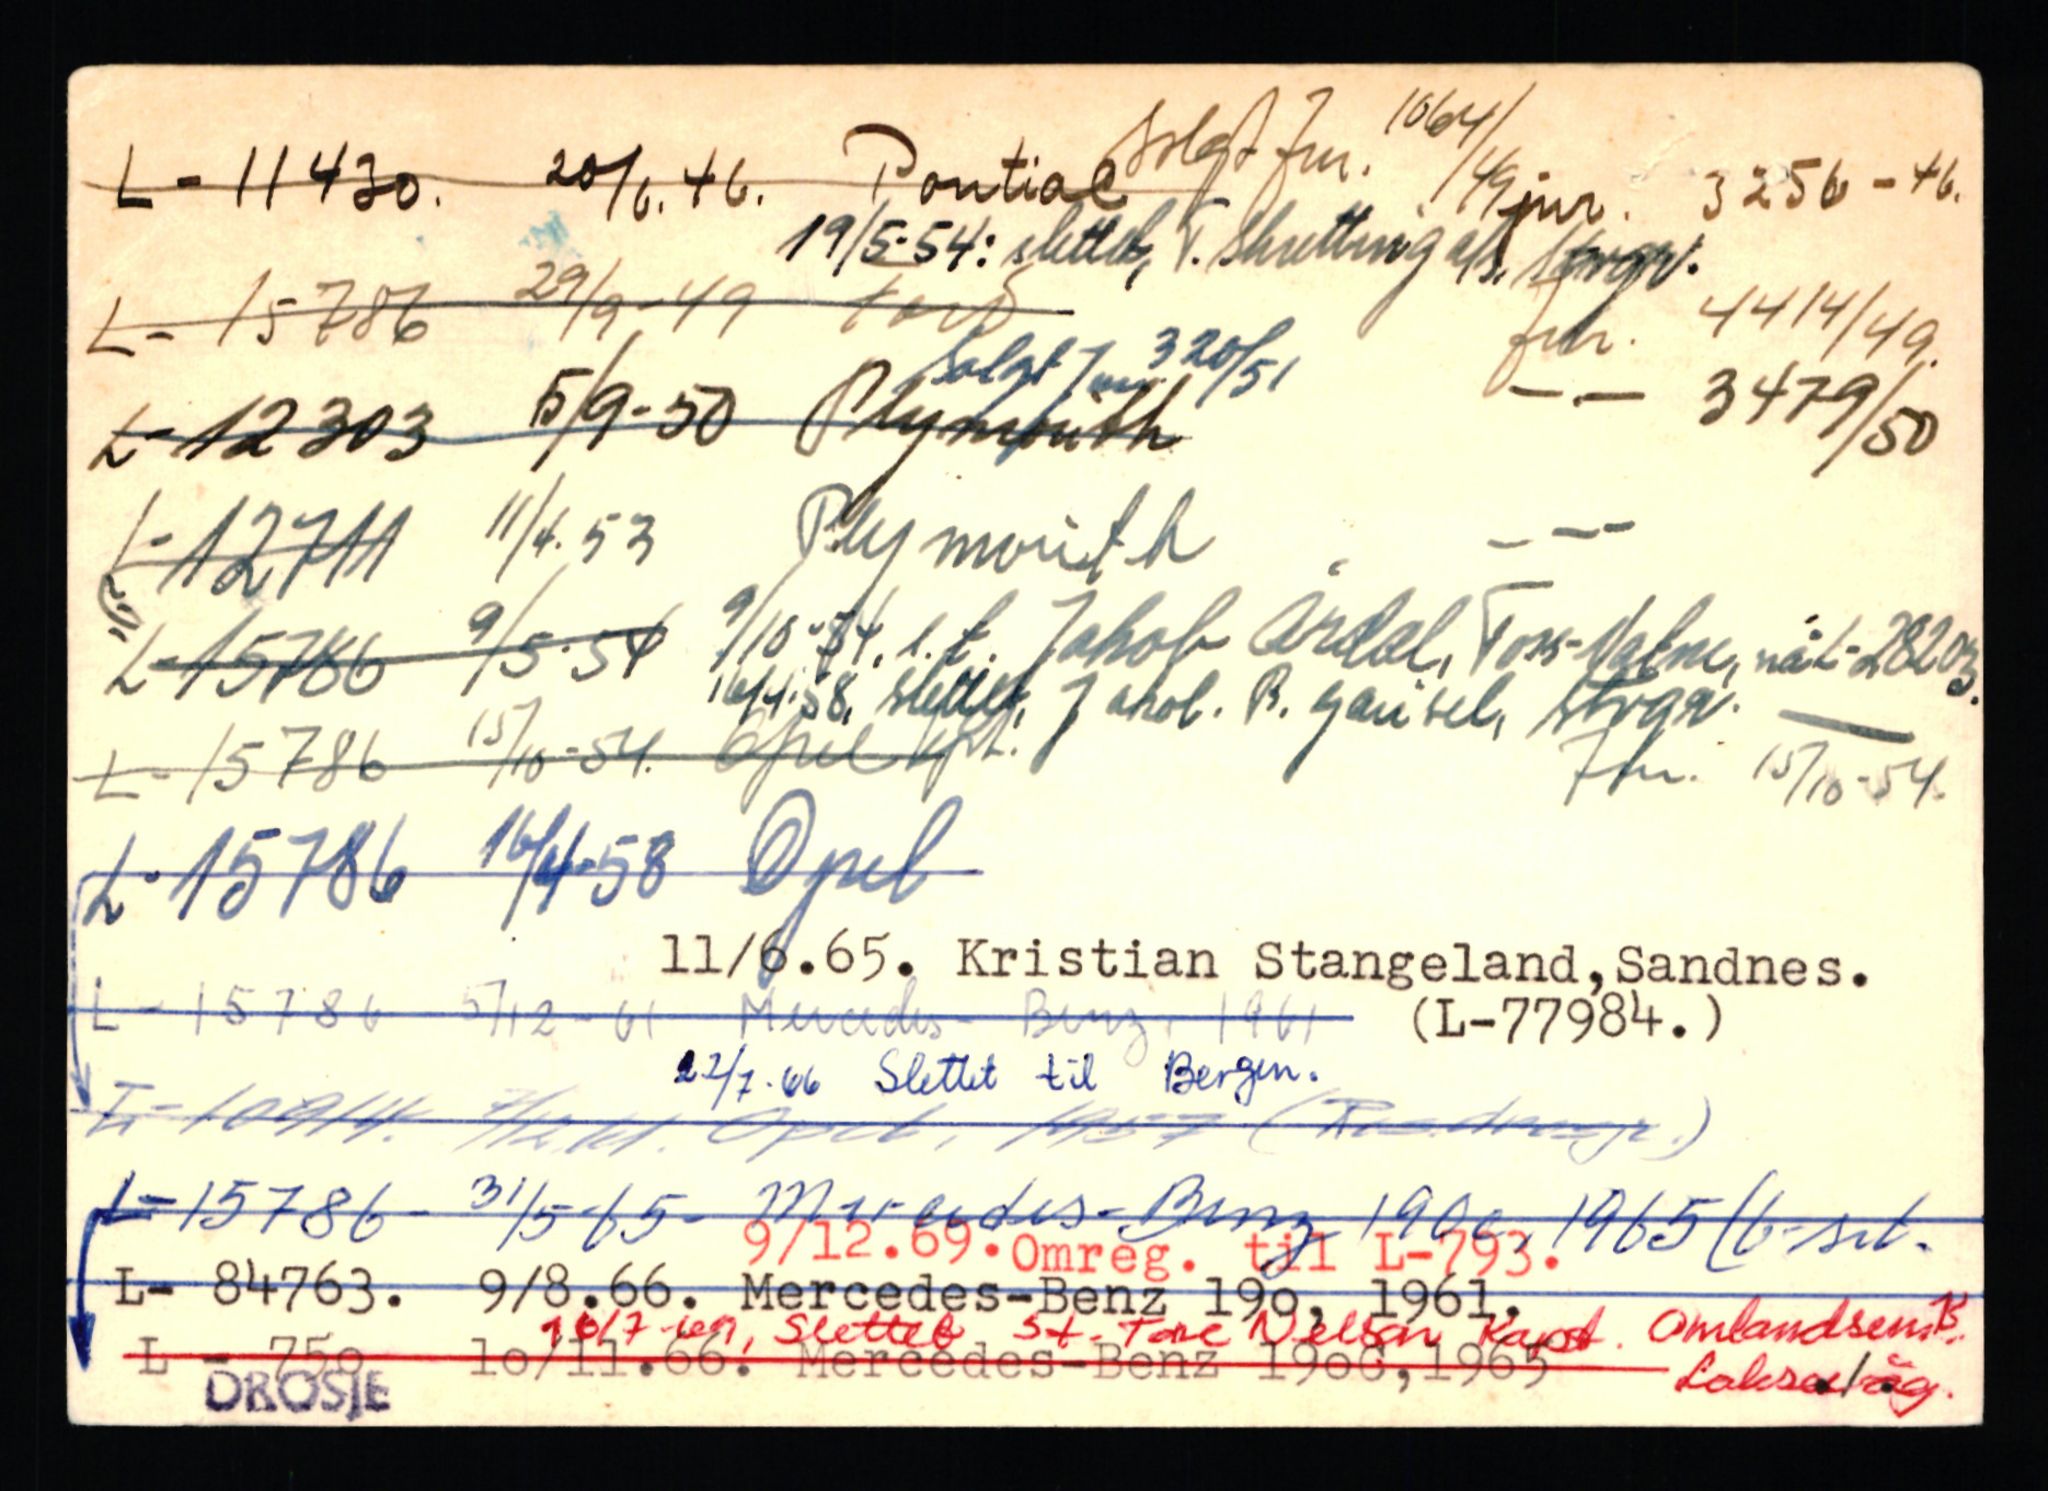 Solgt jnr. 1064/49
L - 11430. 20/6.46. Pontiac jnr. 3256 - 46.
19/5-54: slettet, T. Skretting a/s, Stvgr.
L - 15786 29/9-49 Ford jnr. 4414/49.
Solgt Jnr. 320/51
L - 12303 5/9-50 Plymouth -.- 3479/50
L - 12711 11/4.53 Plymouth - - -
L - 15786 9/5-54 9/10-54, s.t. Jakob Årdal, nå L-28203.
16/4.58, slettet, Jakob. B. Gausel, Stvgr.
L - 15786 15/10-54. Opel Jnr. 15/10-54.
L - 15786 16/4-58 Opel
11/6.65. Kristian Stangeland, Sandnes.
L - 15786 5/12-61 Mercedes-Benz, 1961 (L-77984.)
27/7.66 Slettet til Bergen.
L - 10914. Opel, 1957
L - 15786 - 31/5-65 - Mercedes-Benz 190c, 1965 (6-set.
9/12.69. Omreg. til L-793.
L- 84763. 9/8.66. Mercedes-Benz 19o, 1961.
Slettet st. Tore Nelson Kapt. Omlandsem. 13.
L - 75o 1o/11.66. Mercedes-Benz 19oc, 1965 Laksevåg.
DROSJE